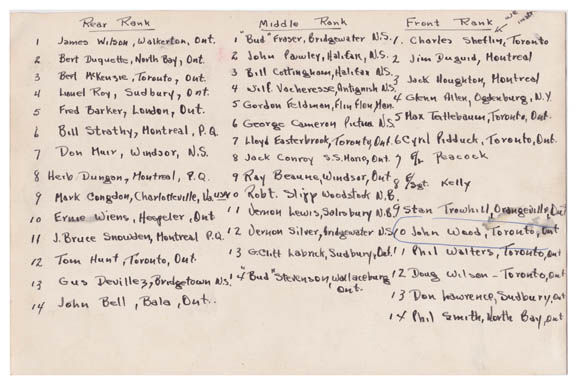 Rear Rank
1 James Wilson, Walkerton, Ont.
2 Bert Duquette, North Bay, Ont.
3 Bert McKenzie, Toronto, Ont.
4 Lionel Roy, Sudbury, Ont.
5 Fred Barker, London, Ont.
6 Bill Strathy, Montreal, P.Q.
7 Don Muir, Windsor, N.S.
8 Herb Dungon, Montreal, P.Q.
9 Mark Congdon, Charlotteville, Va. USA
10 Ernie Wiens, Hespeler, Ont
11 J. Bruce Snowden, Montreal P.Q.
12 Tom Hunt, Toronto, Ont.
13 Gus Devillez, Bridgetown N.S.
14 John Bell, Bala, Ont.
Middle Rank
1 "Bud" Fraser, Bridgewater N.S.
2 John Pauley, Halifax, N.S.
3 Bill Cottingham, Halifax N.S.
4 Wilf Vocheresse, Antignish N.S.
5 Gordon Feldman, Flin Flon, Man.
6 George Cameron Pictou N.S.
7 Lloyd Easterbrook, Toronto, Ont.
8 Jack Conroy S.S. Marie, Ont.
9 Ray Beaune, Windsor, Ont.
10 Robt. Slipp Woodstock N.B.
11 Vernon Lewis, Salisbury N.B.
12 Vernon Silver, Bridgewater N.S.
13 G. Cliff Labrick, Sudbury, Ont.
14 "Bud" Stevenson, Wallaceburg Ont.
Front Rank
1. Charles Sheflin, Toronto
2 Jim Duguid, Montreal
3 Jack Houghton, Montreal
4 Glenn Allen, Ogdenburg, N.Y.
5 Max Teitlebaum, Toronto, Ont.
6 Cyril Pidduck, Toronto, Ont.
7 Peacock
8 Sgt. Kelly
9 Stan Trowhill, Orangeville, Ont
10 John Wood, Toronto, Ont
11 Phil Walters, Toronto, Ont
12 Doug Wilson - Toronto, Ont
13 Don Lawrence, Sudbury, Ont
14 Phil Smith, North Bay, Ont